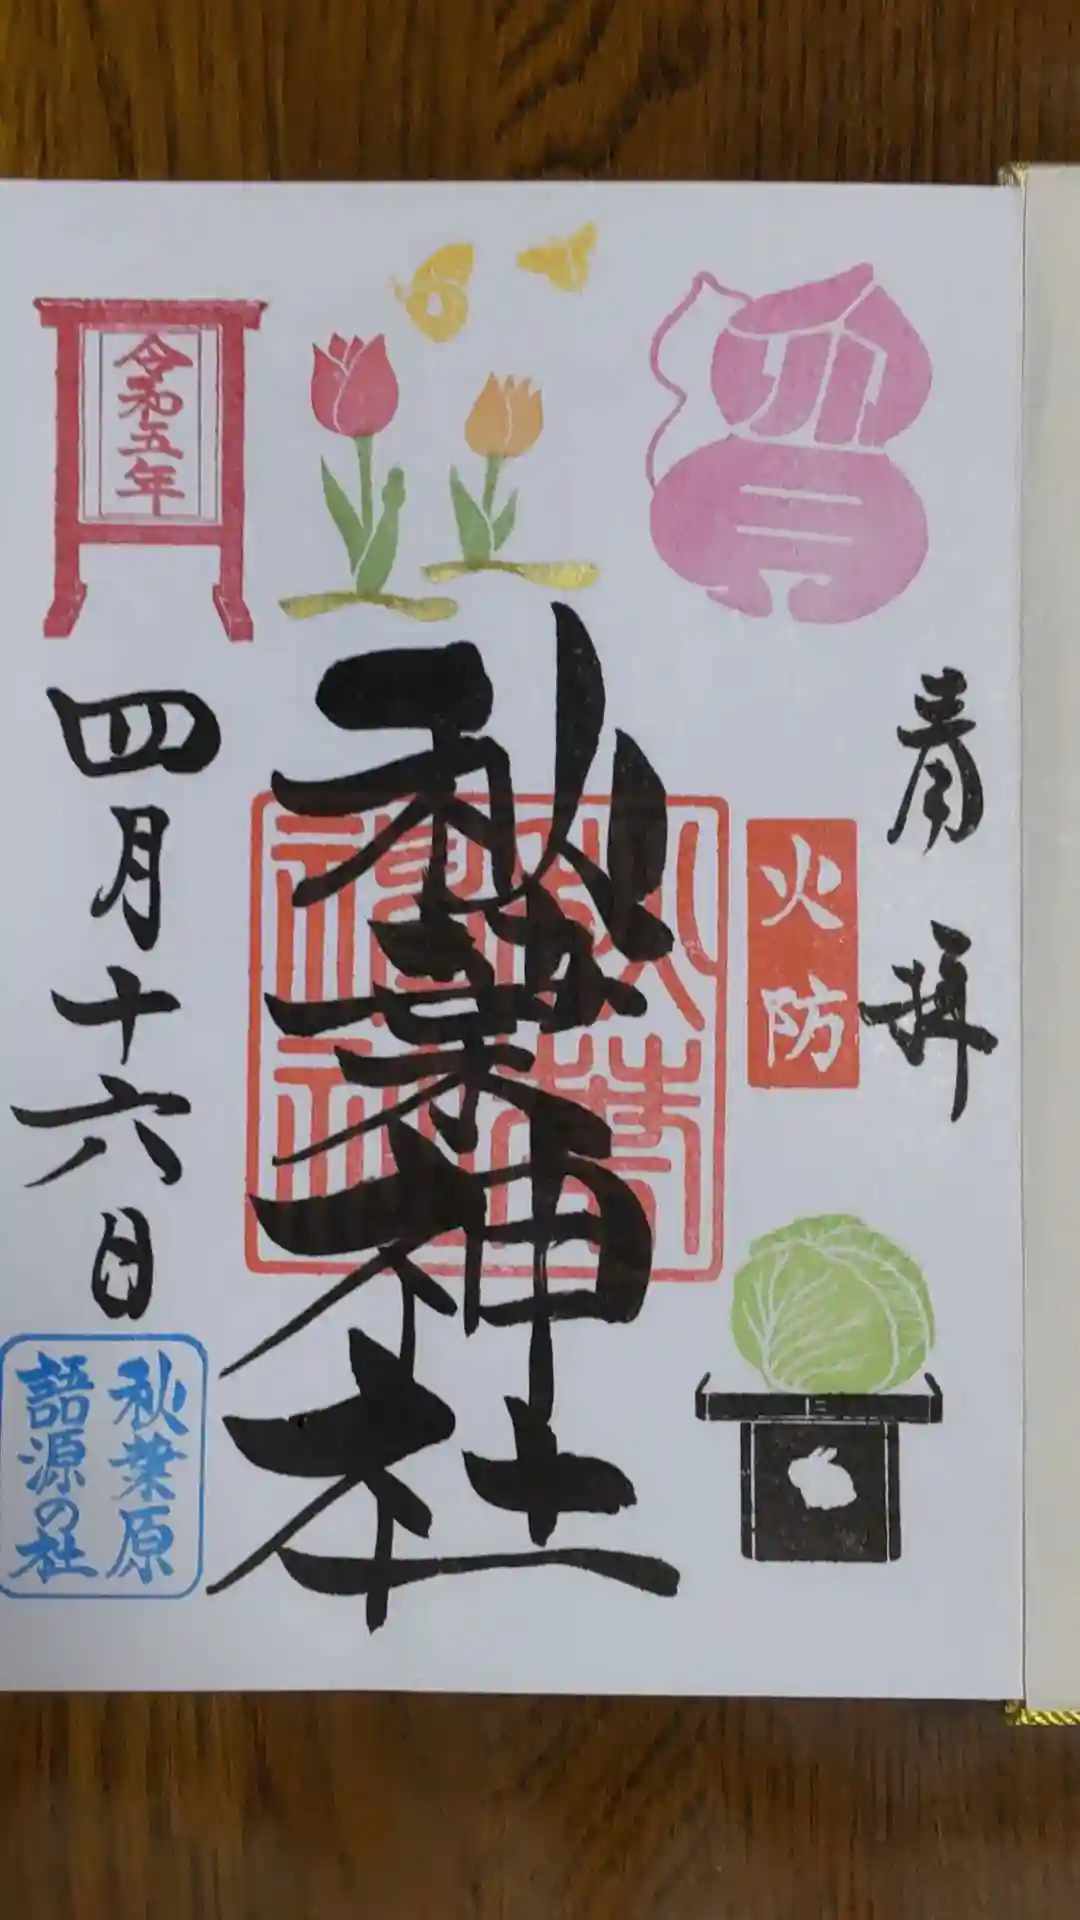 奉拝
火防
秋葉神社
秋葉神社
令和五年
四月十六日
秋葉原
語源の社